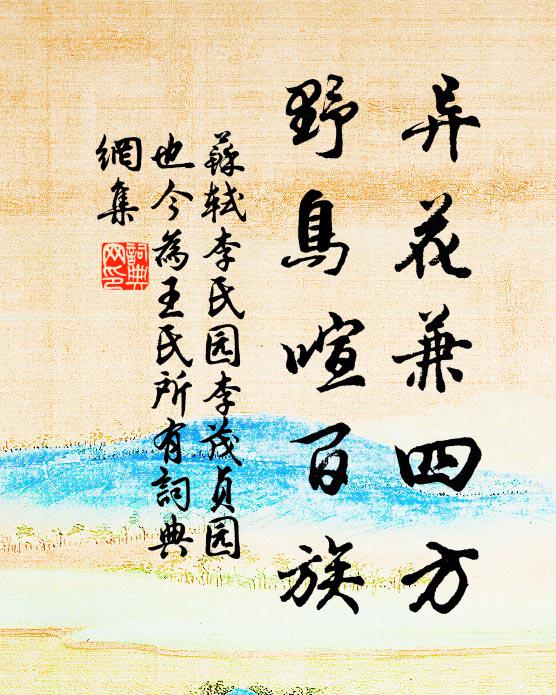 异花兼四方
野鳥喧百族
蘇軾李氏园李茂贞园
也今為王氏所有詞典
網集
詞典
网印